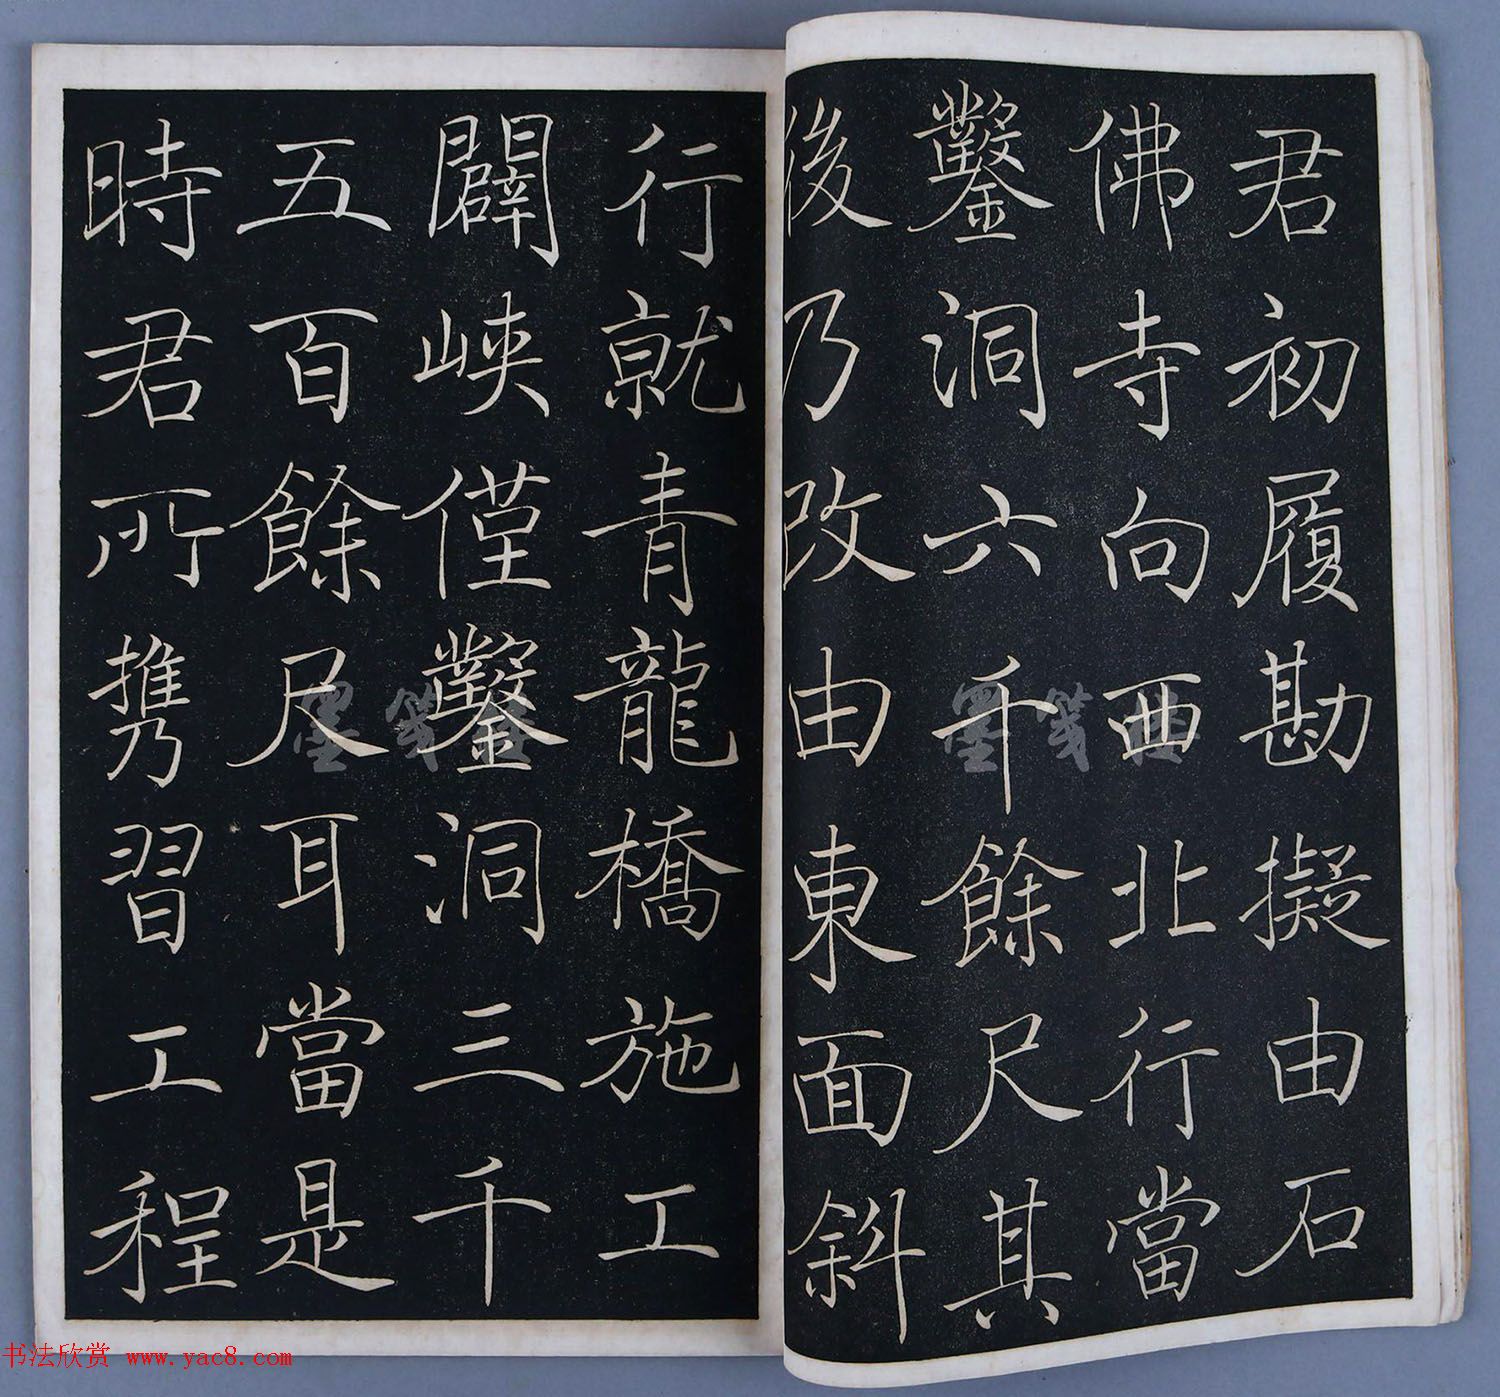 君初履勘擬由石
佛寺向西北行當
鑿洞六千餘尺其
後乃改由東面斜
行就青龍橋施工
闢峽僅鑿洞三千
五百餘尺耳當是
時君所攜習工程
墨笺楼
墨笺楼
书法欣赏 www.yac8.com